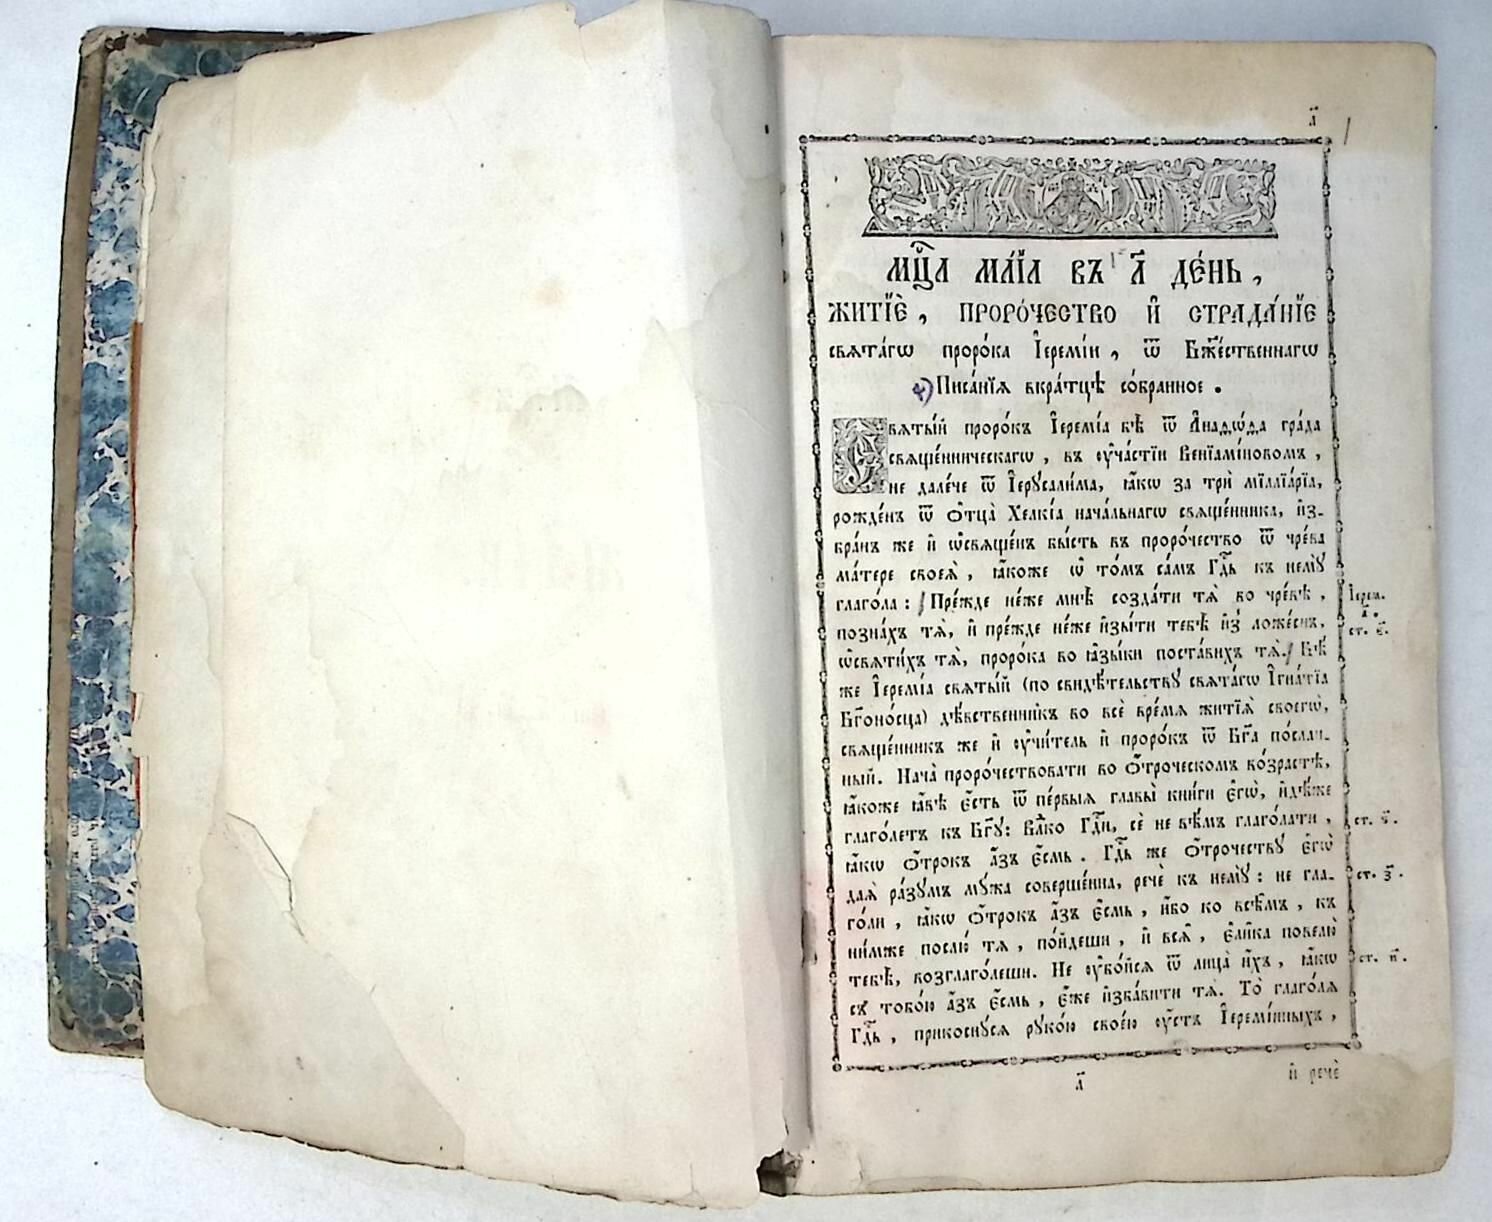 а҃
Мц҃а маі́а въ а҃ де́нь,
житїѐ, проро́чество и҆ страда́нїе
свята́гѡ проро́ка І҆еремі́и, ѿ Бж҃е́ственнагѡ
Писа́нїя вкра́тцѣ со́бранное.
Святы́й проро́къ І҆еремі́а бѣ̀ ѿ А҆наѳѡ́ѳа гра́да
свяще́нническагѡ, въ ᲂу҆ча́стїи Венїамі́новомъ,
не дале́че ѿ І҆ерꙋсали́ма, ꙗ҆́кѡ за трѝ мїллїа́рїа,
рожде́нъ ѿ ѻ҆тца̀ Хелкі́а нача́льнагѡ свяще́нника, и҆з-
бра́нъ же и҆ ѡ҆свяще́нъ бы́сть въ проро́чество ѿ чре́ва
ма́тере своея̀, ꙗ҆́коже ѡ҆ то́мъ са́мъ Гд҇ь къ немꙋ̀
глаго́ла: Пре́жде не́же мнѣ̀ созда́ти тя̀ во чре́вѣ,
позна́хъ тя̀, и҆ пре́жде не́же и҆зы́ти тебѣ̀ и҆з̾ ложе́снъ,
ѡ҆святи́хъ тя̀, проро́ка во ꙗ҆зы́ки поста́вихъ тя̀. Бѣ́
же І҆еремі́а святы́й (по свидѣ́тельствꙋ свята́гѡ І҆гна́тїа
Бг҃оно́сца) дѣ́вственникъ во всѐ вре́мя житїя̀ своегѡ̀,
свяще́нникъ же и҆ ᲂу҆чи́тель и҆ проро́къ ѿ Бг҃а по́слан-
ный. Нача̀ проро́чествовати во ѻ҆́троческомъ во́зрастѣ,
ꙗ҆́коже ꙗ҆́вѣ є҆́сть ѿ пе́рвыя главы̀ кни́ги є҆гѡ̀, и҆дѣ́же
глаго́летъ къ Бг҃ꙋ: Влⷣко Гдⷭ҇и, сѐ не вѣ́мъ глаго́лати,
ꙗ҆́кѡ ѻ҆́трокъ а҆́зъ є҆́смь. Гд҇ь же ѻ҆́трочествꙋ є҆гѡ̀
дая̀ ра́зꙋмъ мꙋ́жа соверше́нна, речѐ къ немꙋ̀: не гла-
го́ли, ꙗ҆́кѡ ѻ҆́трокъ а҆́зъ є҆́смь, и҆́бо ко всѣ̑мъ, къ
ни́мже послю́ тя, по́йдеши, и҆ вся̑, є҆ли̑ка повелю̀
тебѣ̀, возглаго́леши. Не ᲂу҆бо́йся ѿ лица̀ и҆́хъ, ꙗ҆́кѡ
съ тобо́ю а҆́зъ є҆́смь, є҆́же и҆зба́вити тя̀. То̀ глаго́ля
Гд҇ь, прикоснꙋ́ся рꙋко́ю свое́ю ᲂу҆́стъ І҆еремі́иныхъ,
І҆ерем.
а҃.
ст. є҃.
ст. ѕ҃.
ст. з҃.
ст. и҃.
а҃
и҆ речѐ